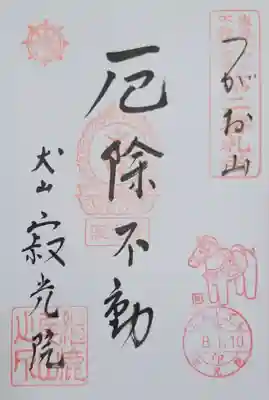 つがお山
厄除不動
犬山 寂光院
8.1.10